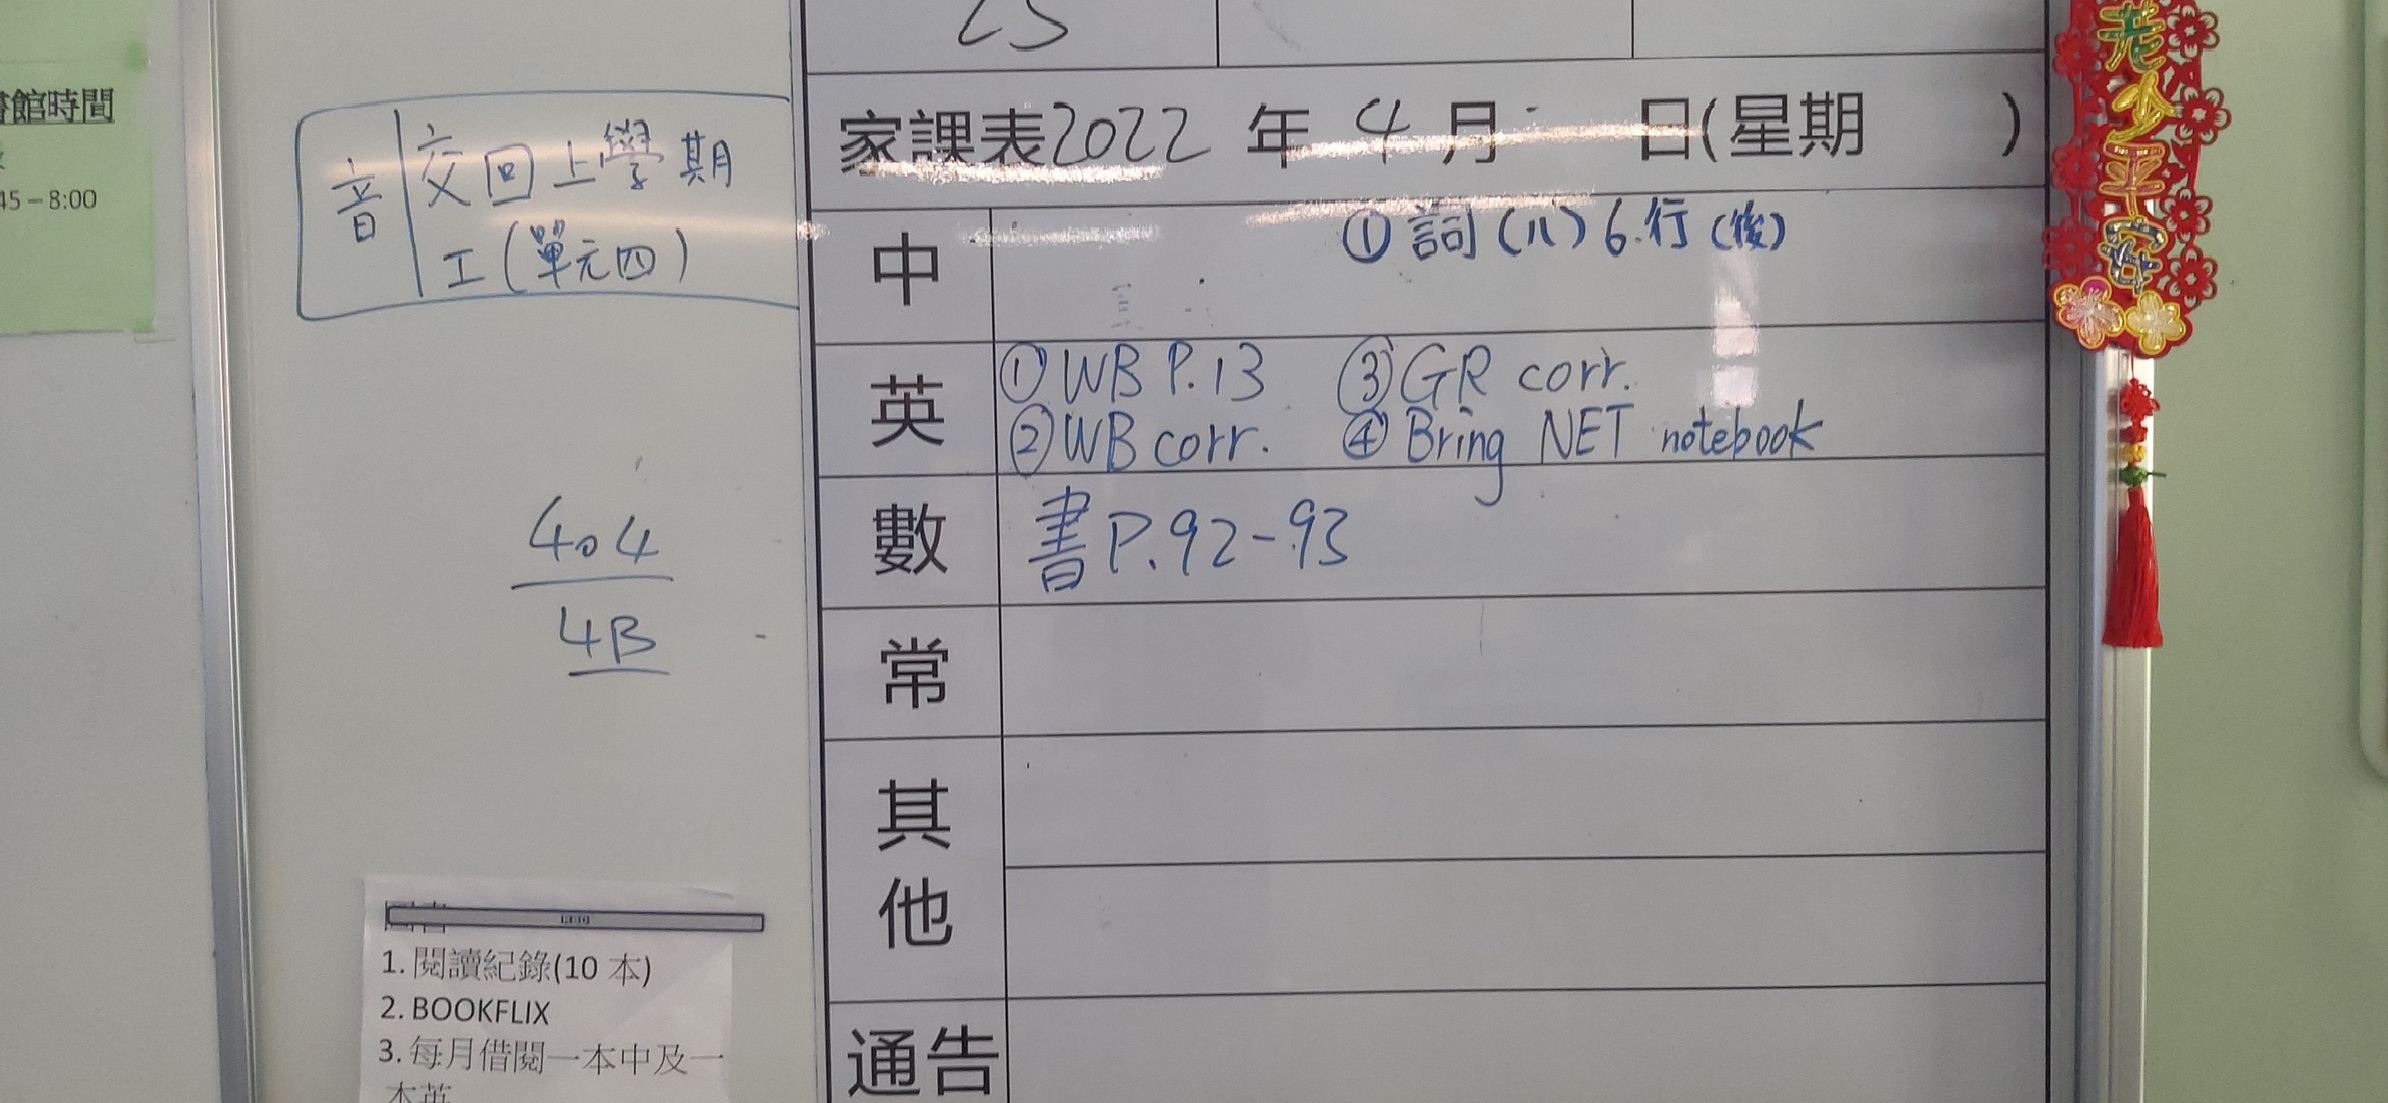 書館時間
45－8:00
音 交回上學期
工(單元四)
404
4B
1. 閱讀紀錄(10 本)
2. BOOKFLIX
3. 每月借閱一本中及一
本英
家課表2022 年 4 月 日(星期 )
中 ① 詞(八)6.行(後)
英 ①WB P.13 ③GR corr.
②WB corr. ④Bring NET notebook
數 書P.92-93
常
其他
通告
老少平安